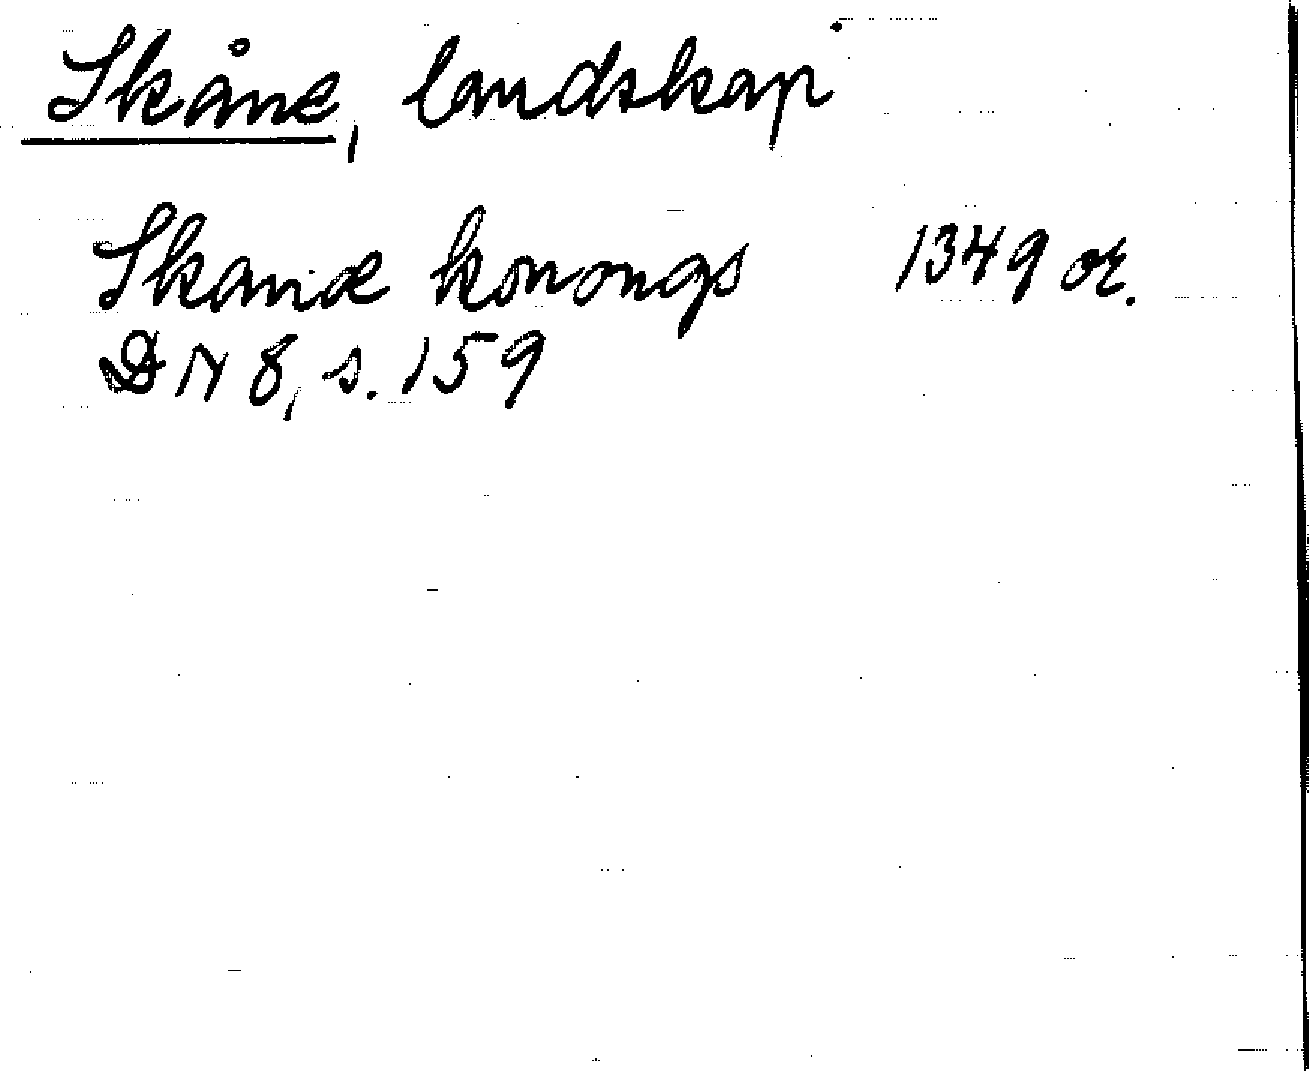 Skåne, landskap
Skanæ konongs 1349 or.
DN 8, s. 159